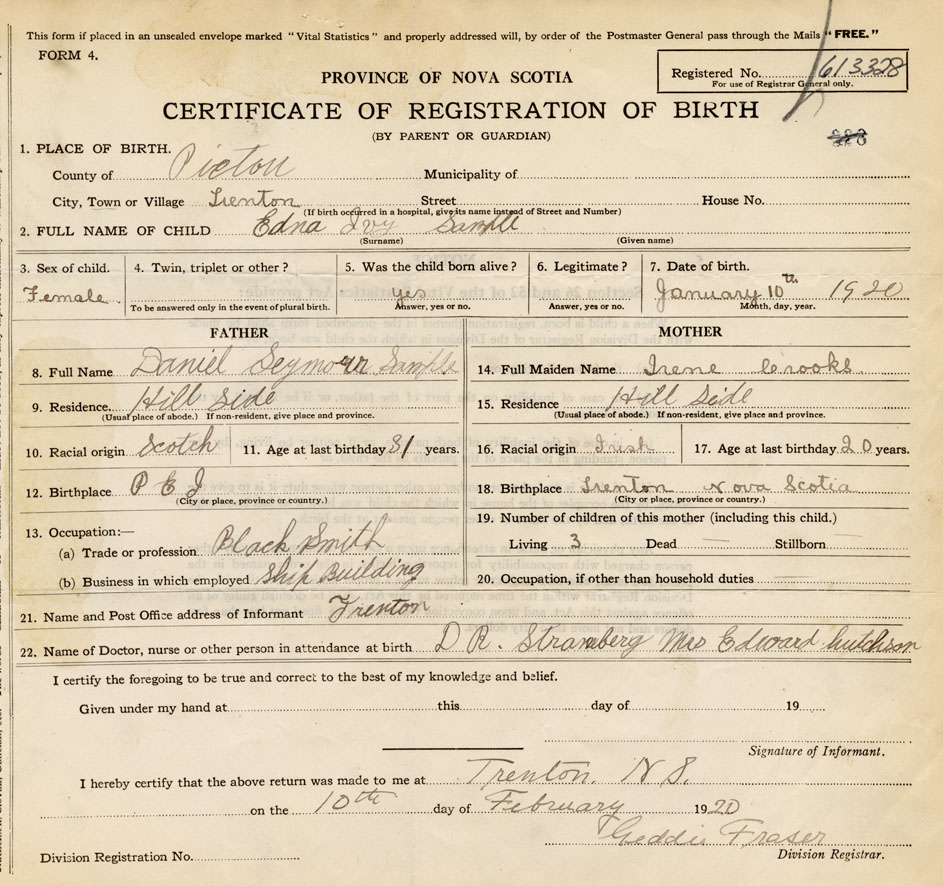 This form if placed in an unsealed envelope marked "Vital Statistics" and properly addressed will, by order of the Postmaster General pass through the Mails "FREE."
FORM 4.
Registered No. 613328
For use of Registrar General only.
PROVINCE OF NOVA SCOTIA
CERTIFICATE OF REGISTRATION OF BIRTH
(BY PARENT OR GUARDIAN)
1. PLACE OF BIRTH.
County of Pictou Municipality of
City, Town or Village Trenton Street House No.
(If birth occurred in a hospital, give its name instead of Street and Number)
2. FULL NAME OF CHILD Edna Ivy Sample
(Surname) (Given name)
3. Sex of child. 4. Twin, triplet or other? 5. Was the child born alive? 6. Legitimate? 7. Date of birth.
Female yes January 10th 1920
To be answered only in the event of plural birth. Answer, yes or no. Answer, yes or no. Month, day, year.
FATHER
8. Full Name Daniel Seymour Sample
9. Residence Hill Side
(Usual place of abode.) If non-resident, give place and province.
10. Racial origin Scotch 11. Age at last birthday 31 years.
12. Birthplace P E I
(City or place, province or country.)
13. Occupation:—
(a) Trade or profession Black Smith
(b) Business in which employed Ship Building
MOTHER
14. Full Maiden Name Irene Crooks
15. Residence Hill Side
(Usual place of abode.) If non-resident, give place and province.
16. Racial origin Irish 17. Age at last birthday 20 years.
18. Birthplace Trenton Nova Scotia
(City or place, province or country.)
19. Number of children of this mother (including this child.)
Living 3 Dead — Stillborn —
20. Occupation, if other than household duties —
21. Name and Post Office address of Informant Trenton
22. Name of Doctor, nurse or other person in attendance at birth D R. Stramberg Mrs Edward Hutchison
I certify the foregoing to be true and correct to the best of my knowledge and belief.
Given under my hand at this day of 19
Signature of Informant.
I hereby certify that the above return was made to me at Trenton. N S.
on the 10th day of February 1920
Geddie Fraser
Division Registration No. Division Registrar.